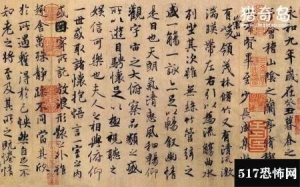 猎奇岛
和九年歲在癸丑暮春
會稽山陰之蘭亭
賢畢至少長咸集
有崇山峻領茂林脩竹又有清流激
湍暎帶左右引以為流觴曲水
列坐其次雖無絲竹管弦之
盛一觴一詠亦足以暢敘幽情
是日也天朗氣清惠風和暢仰
觀宇宙之大俯察品類之盛
所以遊目騁懷足以極視聽之
娛信可樂也夫人之相與俯仰
一世或取諸懷抱悟言一室之內
或因寄所託放浪形骸之外雖
趣舍萬殊靜躁不同當其欣
於所遇暫得於己怏然自足不
知老之將至及其所之既惓情
517恐怖网